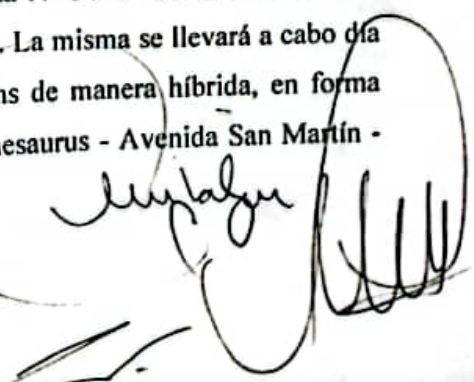 . La misma se llevará a cabo día
ns de manera híbrida, en forma
hesaurus - Avenida San Martín -